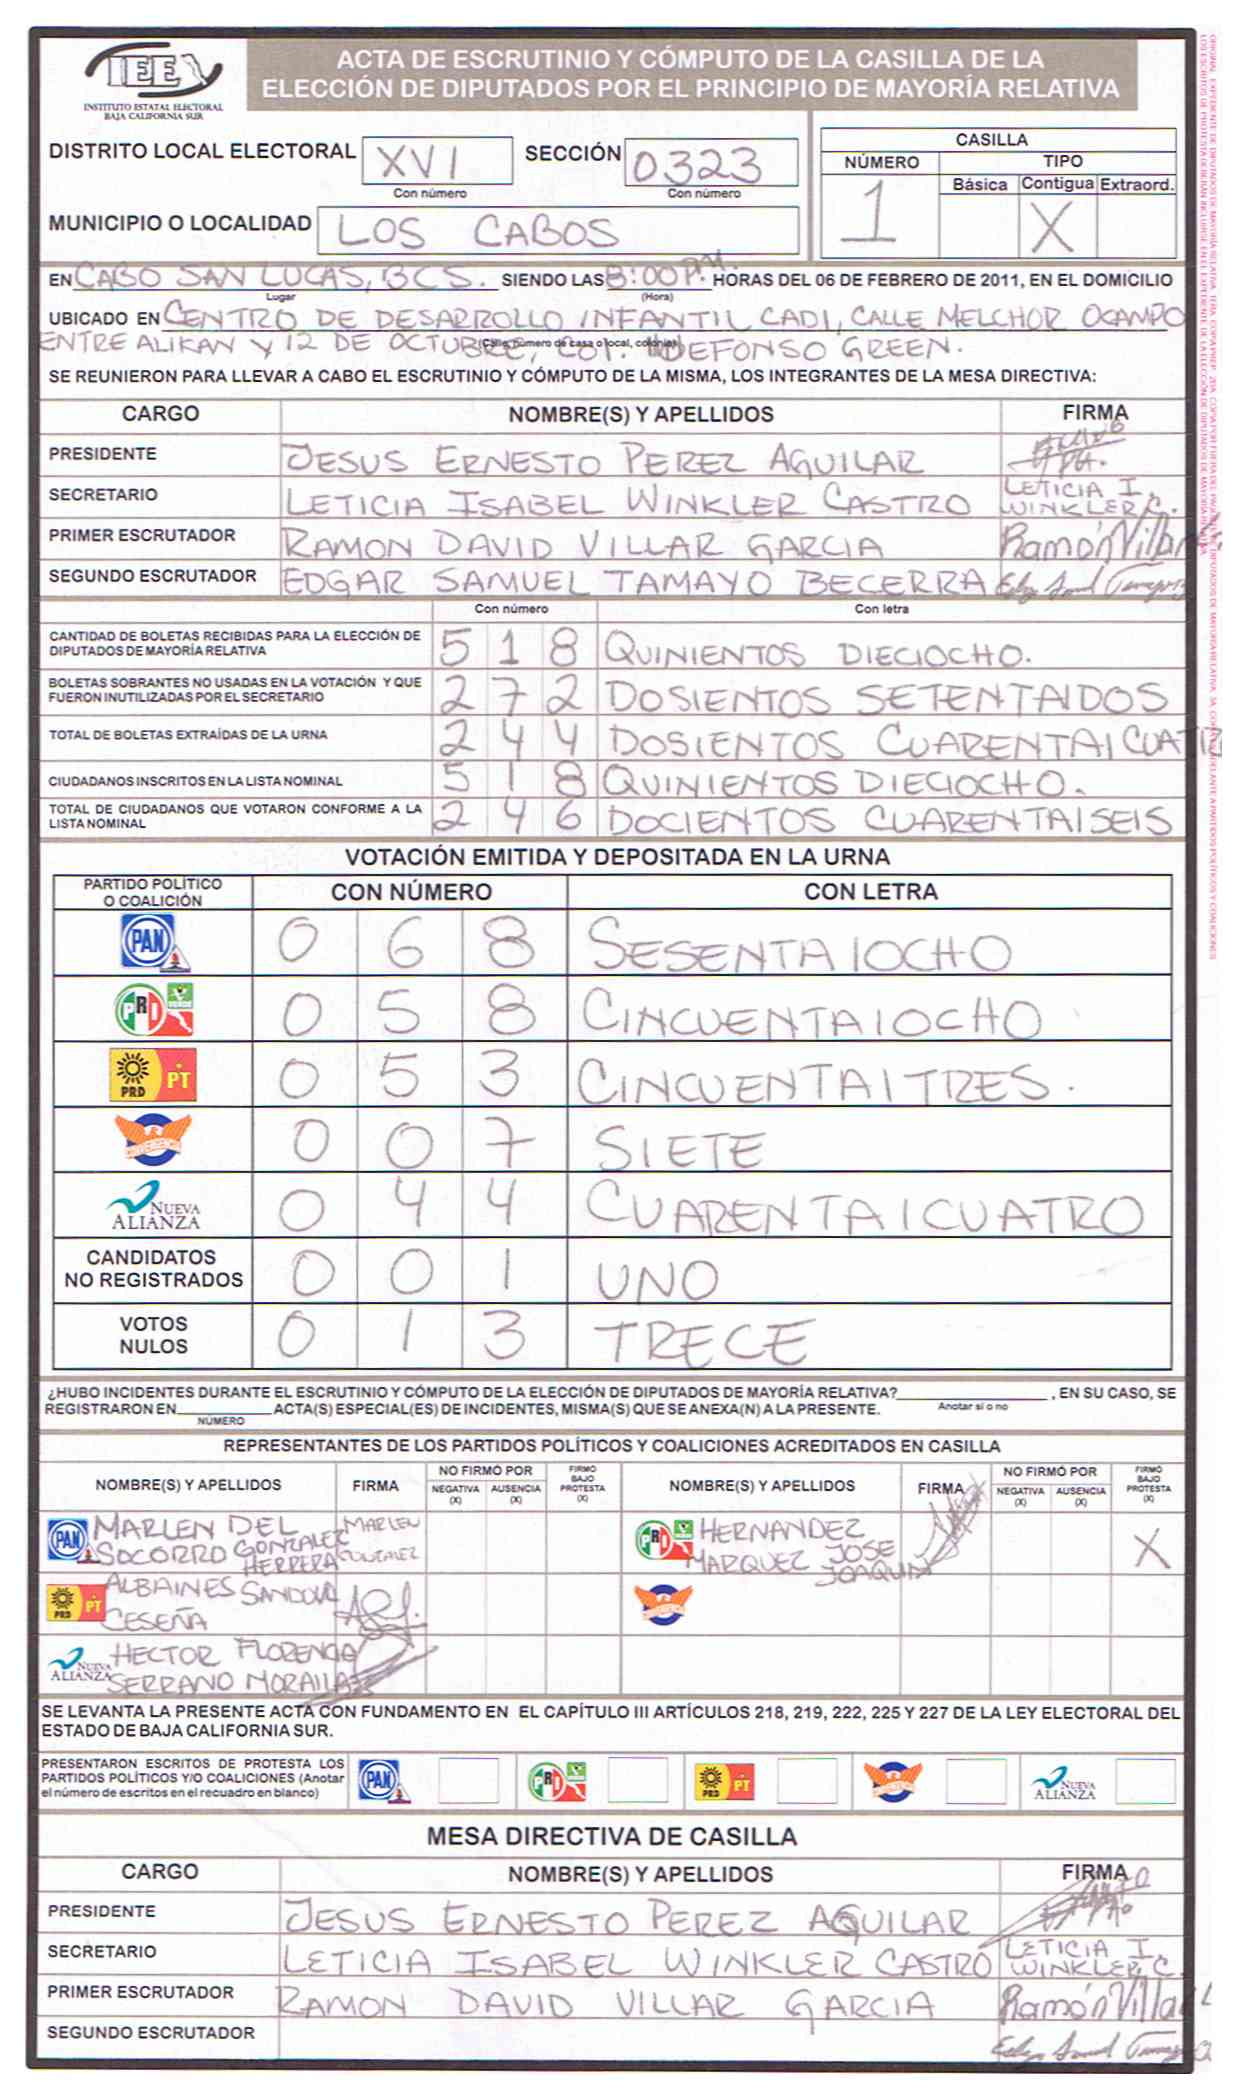 IEE
INSTITUTO ESTATAL ELECTORAL
BAJA CALIFORNIA SUR
ACTA DE ESCRUTINIO Y CÓMPUTO DE LA CASILLA DE LA
ELECCIÓN DE DIPUTADOS POR EL PRINCIPIO DE MAYORÍA RELATIVA
DISTRITO LOCAL ELECTORAL XVI SECCIÓN 0323
Con número Con número
MUNICIPIO O LOCALIDAD LOS CABOS
CASILLA
NÚMERO TIPO
Básica Contigua Extraord.
1 X
EN CABO SAN LUCAS, BCS. SIENDO LAS 8:00 P.M. HORAS DEL 06 DE FEBRERO DE 2011, EN EL DOMICILIO
Lugar (Hora)
UBICADO EN CENTRO DE DESARROLLO INFANTIL CADI, CALLE MELCHOR OCAMPO
ENTRE ALIKAN Y 12 DE OCTUBRE, COL. ILDEFONSO GREEN.
(Calle, número de casa o local, colonia)
SE REUNIERON PARA LLEVAR A CABO EL ESCRUTINIO Y CÓMPUTO DE LA MISMA, LOS INTEGRANTES DE LA MESA DIRECTIVA:
CARGO NOMBRE(S) Y APELLIDOS FIRMA
PRESIDENTE JESUS ERNESTO PEREZ AGUILAR
SECRETARIO LETICIA ISABEL WINKLER CASTRO LETICIA I. WINKLER C.
PRIMER ESCRUTADOR RAMON DAVID VILLAR GARCIA Ramón Villar
SEGUNDO ESCRUTADOR EDGAR SAMUEL TAMAYO BECERRA
Con número Con letra
CANTIDAD DE BOLETAS RECIBIDAS PARA LA ELECCIÓN DE
DIPUTADOS DE MAYORÍA RELATIVA 5 1 8 QUINIENTOS DIECIOCHO.
BOLETAS SOBRANTES NO USADAS EN LA VOTACIÓN Y QUE
FUERON INUTILIZADAS POR EL SECRETARIO 2 7 2 DOSIENTOS SETENTAIDOS
TOTAL DE BOLETAS EXTRAÍDAS DE LA URNA 2 4 4 DOSIENTOS CUARENTAICUATR
CIUDADANOS INSCRITOS EN LA LISTA NOMINAL 5 1 8 QUINIENTOS DIECIOCHO.
TOTAL DE CIUDADANOS QUE VOTARON CONFORME A LA
LISTA NOMINAL 2 4 6 DOCIENTOS CUARENTAISEIS
VOTACIÓN EMITIDA Y DEPOSITADA EN LA URNA
PARTIDO POLÍTICO
O COALICIÓN CON NÚMERO CON LETRA
PAN 0 6 8 SESENTAIOCHO
PRI VERDE 0 5 8 CINCUENTAIOCHO
PRD PT 0 5 3 CINCUENTAITRES.
CONVERGENCIA 0 0 7 SIETE
NUEVA ALIANZA 0 4 4 CUARENTAICUATRO
CANDIDATOS
NO REGISTRADOS 0 0 1 UNO
VOTOS
NULOS 0 1 3 TRECE
¿HUBO INCIDENTES DURANTE EL ESCRUTINIO Y CÓMPUTO DE LA ELECCIÓN DE DIPUTADOS DE MAYORÍA RELATIVA? , EN SU CASO, SE
Anotar si o no
REGISTRARON EN ACTA(S) ESPECIAL(ES) DE INCIDENTES, MISMA(S) QUE SE ANEXA(N) A LA PRESENTE.
NÚMERO
REPRESENTANTES DE LOS PARTIDOS POLÍTICOS Y COALICIONES ACREDITADOS EN CASILLA
NOMBRE(S) Y APELLIDOS FIRMA NO FIRMÓ POR NEGATIVA (X) AUSENCIA (X) FIRMÓ BAJO PROTESTA (X) NOMBRE(S) Y APELLIDOS FIRMA NO FIRMÓ POR NEGATIVA (X) AUSENCIA (X) FIRMÓ BAJO PROTESTA (X)
PAN MARLEN DEL SOCORRO GONZALEZ HERRERA MARLEN GONZALEZ
PRI VERDE HERNANDEZ MARQUEZ JOSE JOAQUIN X
PRD PT ALBAINES SANDOVAL CESEÑA
CONVERGENCIA
NUEVA ALIANZA HECTOR SERRANO
SE LEVANTA LA PRESENTE ACTA CON FUNDAMENTO EN EL CAPÍTULO III ARTÍCULOS 218, 219, 222, 225 Y 227 DE LA LEY ELECTORAL DEL
ESTADO DE BAJA CALIFORNIA SUR.
PRESENTARON ESCRITOS DE PROTESTA LOS
PARTIDOS POLÍTICOS Y/O COALICIONES (Anotar
el número de escritos en el recuadro en blanco)
PAN PRI VERDE PRD PT CONVERGENCIA NUEVA ALIANZA
MESA DIRECTIVA DE CASILLA
CARGO NOMBRE(S) Y APELLIDOS FIRMA
PRESIDENTE JESUS ERNESTO PEREZ AGUILAR
SECRETARIO LETICIA ISABEL WINKLER CASTRO LETICIA I. WINKLER C.
PRIMER ESCRUTADOR RAMON DAVID VILLAR GARCIA Ramón Villar
SEGUNDO ESCRUTADOR